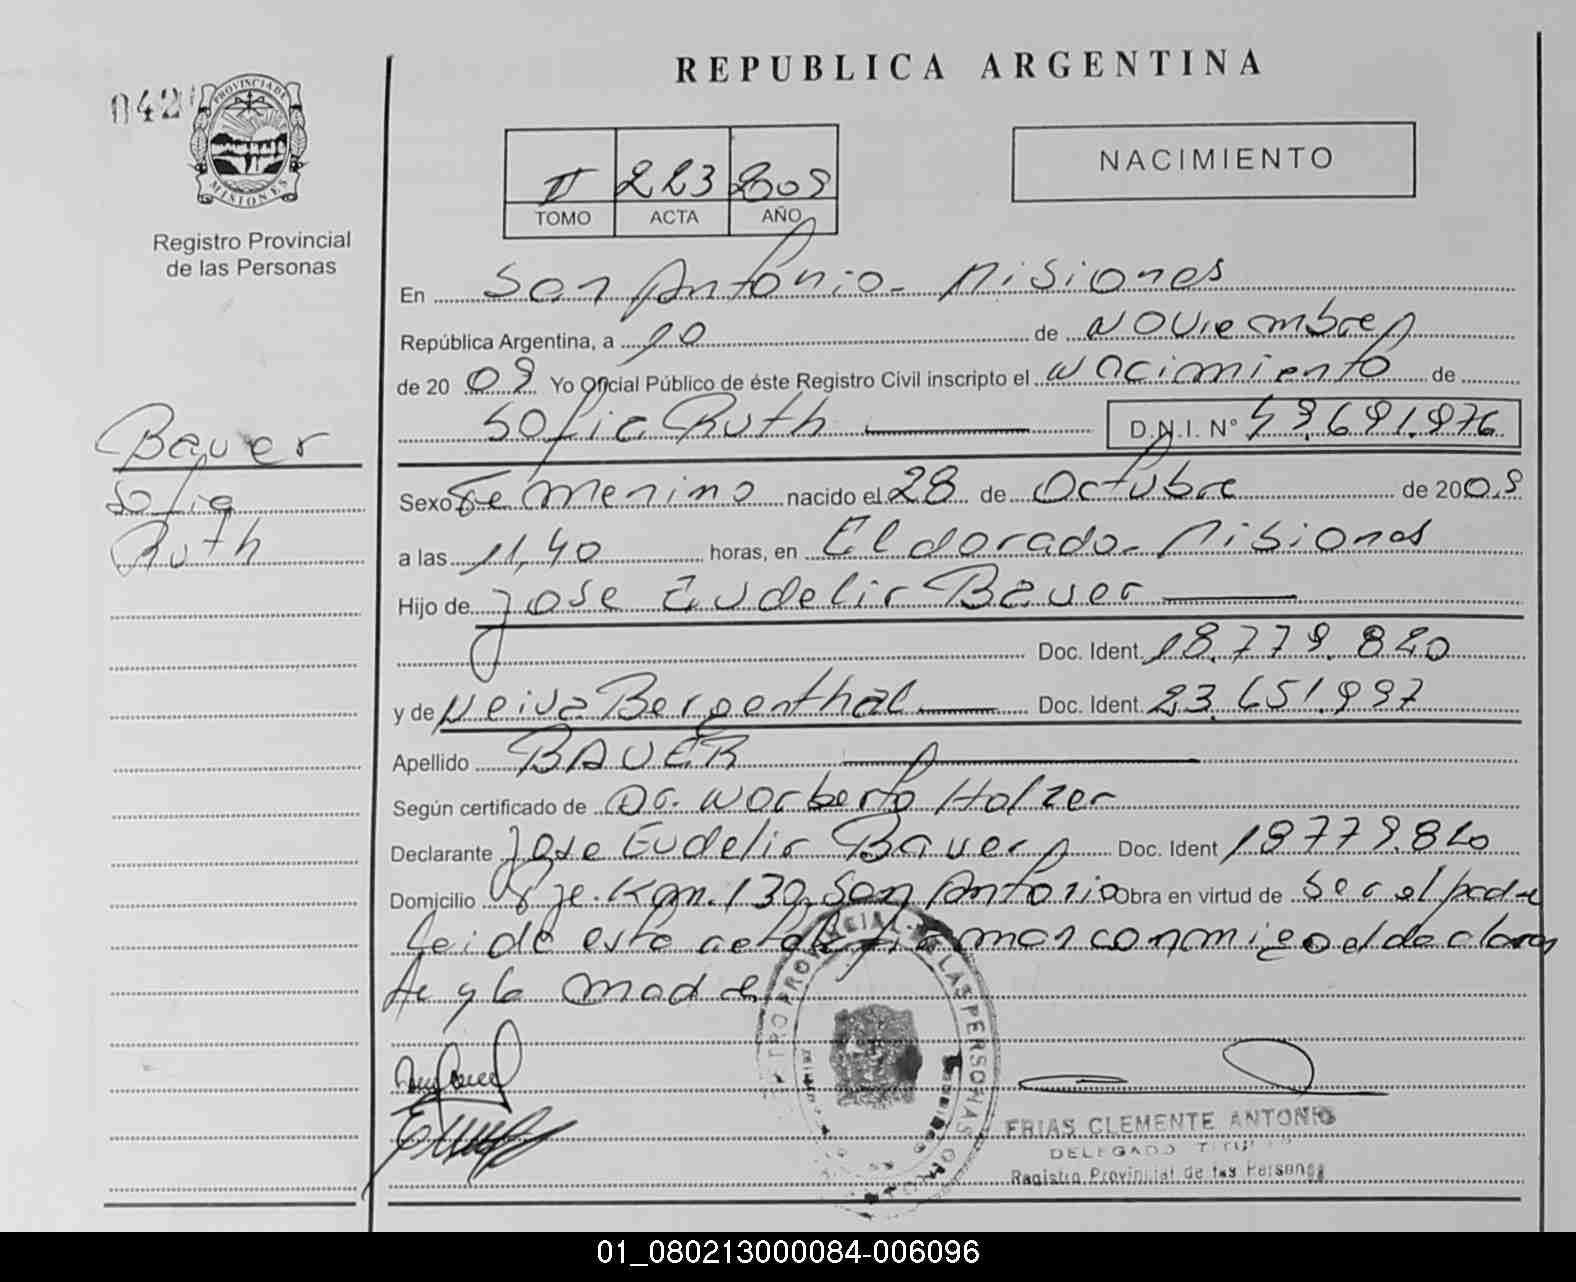 REPUBLICA ARGENTINA
042
PROVINCIA DE
MISIONES
Registro Provincial
de las Personas
II 223 2009
TOMO ACTA AÑO
NACIMIENTO
En San Antonio - Misiones
República Argentina, a 10 de Noviembre
de 20 09 Yo Oficial Público de éste Registro Civil inscripto el Nacimiento de
Sofia Ruth D.N.I. N° 49.691.976
Bauer
Sofia
Ruth
Sexo Femenino nacido el 28 de Octubre de 2009
a las 11,40 horas, en Eldorado - Misiones
Hijo de Jose Eudelir Bauer
Doc. Ident. 18.779.820
y de Neiva Bergenthal Doc. Ident. 23.651.997
Apellido BAUER
Según certificado de Dr. Norberto Holzer
Declarante Jose Eudelir Bauer Doc. Ident 18779.820
Domicilio Pje. Km. 130, San Antonio Obra en virtud de Ser el padre
Leida esta acta firman conmigo el declaran
te y la madre
FRIAS CLEMENTE ANTONIO
DELEGADO TITULAR
Registro Provincial de las Personas
01_080213000084-006096